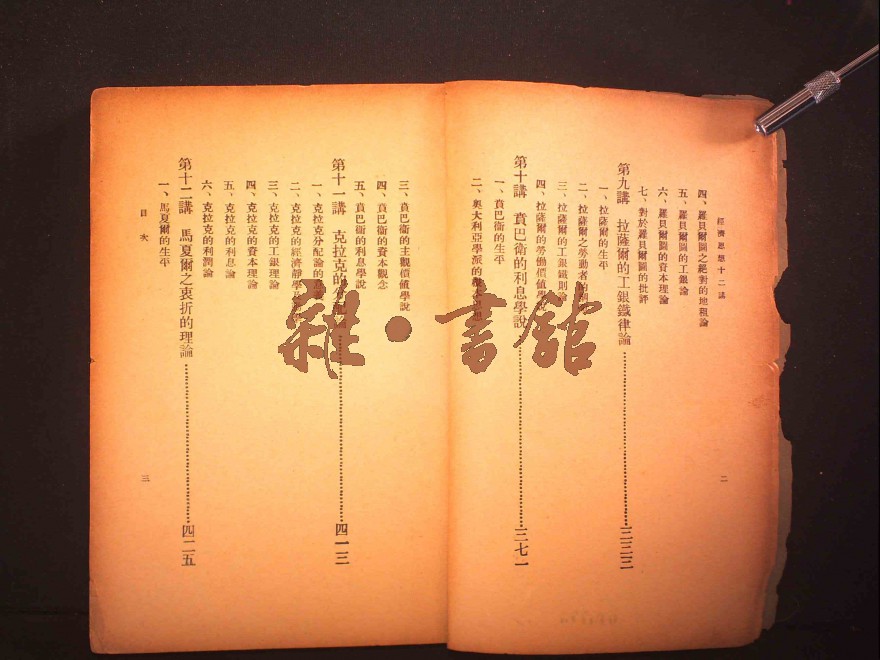 經濟思想十二講
四、羅貝爾圖之絕對的地租論
五、羅貝爾圖的工銀論
六、羅貝爾圖的資本理論
七、對於羅貝爾圖的批評
第九講 拉薩爾的工銀鐵律論……三二三
一、拉薩爾的生平
二、拉薩爾之勞動者的
三、拉薩爾的工銀鐵則論
四、拉薩爾的勞働價値學
第十講 賁巴衛的利息學說……三七一
一、賁巴衛的生平
二、奧大利亞學派的
二
三、賁巴衛的主觀價値學說
四、賁巴衛的資本觀念
五、賁巴衛的利息學說
第十一講 克拉克的分配論……四一三
一、克拉克分配論的
二、克拉克的經濟靜學
三、克拉克的工銀理論
四、克拉克的資本理論
五、克拉克的利息論
六、克拉克的利潤論
第十二講 馬夏爾之衷折的理論……四二五
一、馬夏爾的生平
目次
三
雜·書館